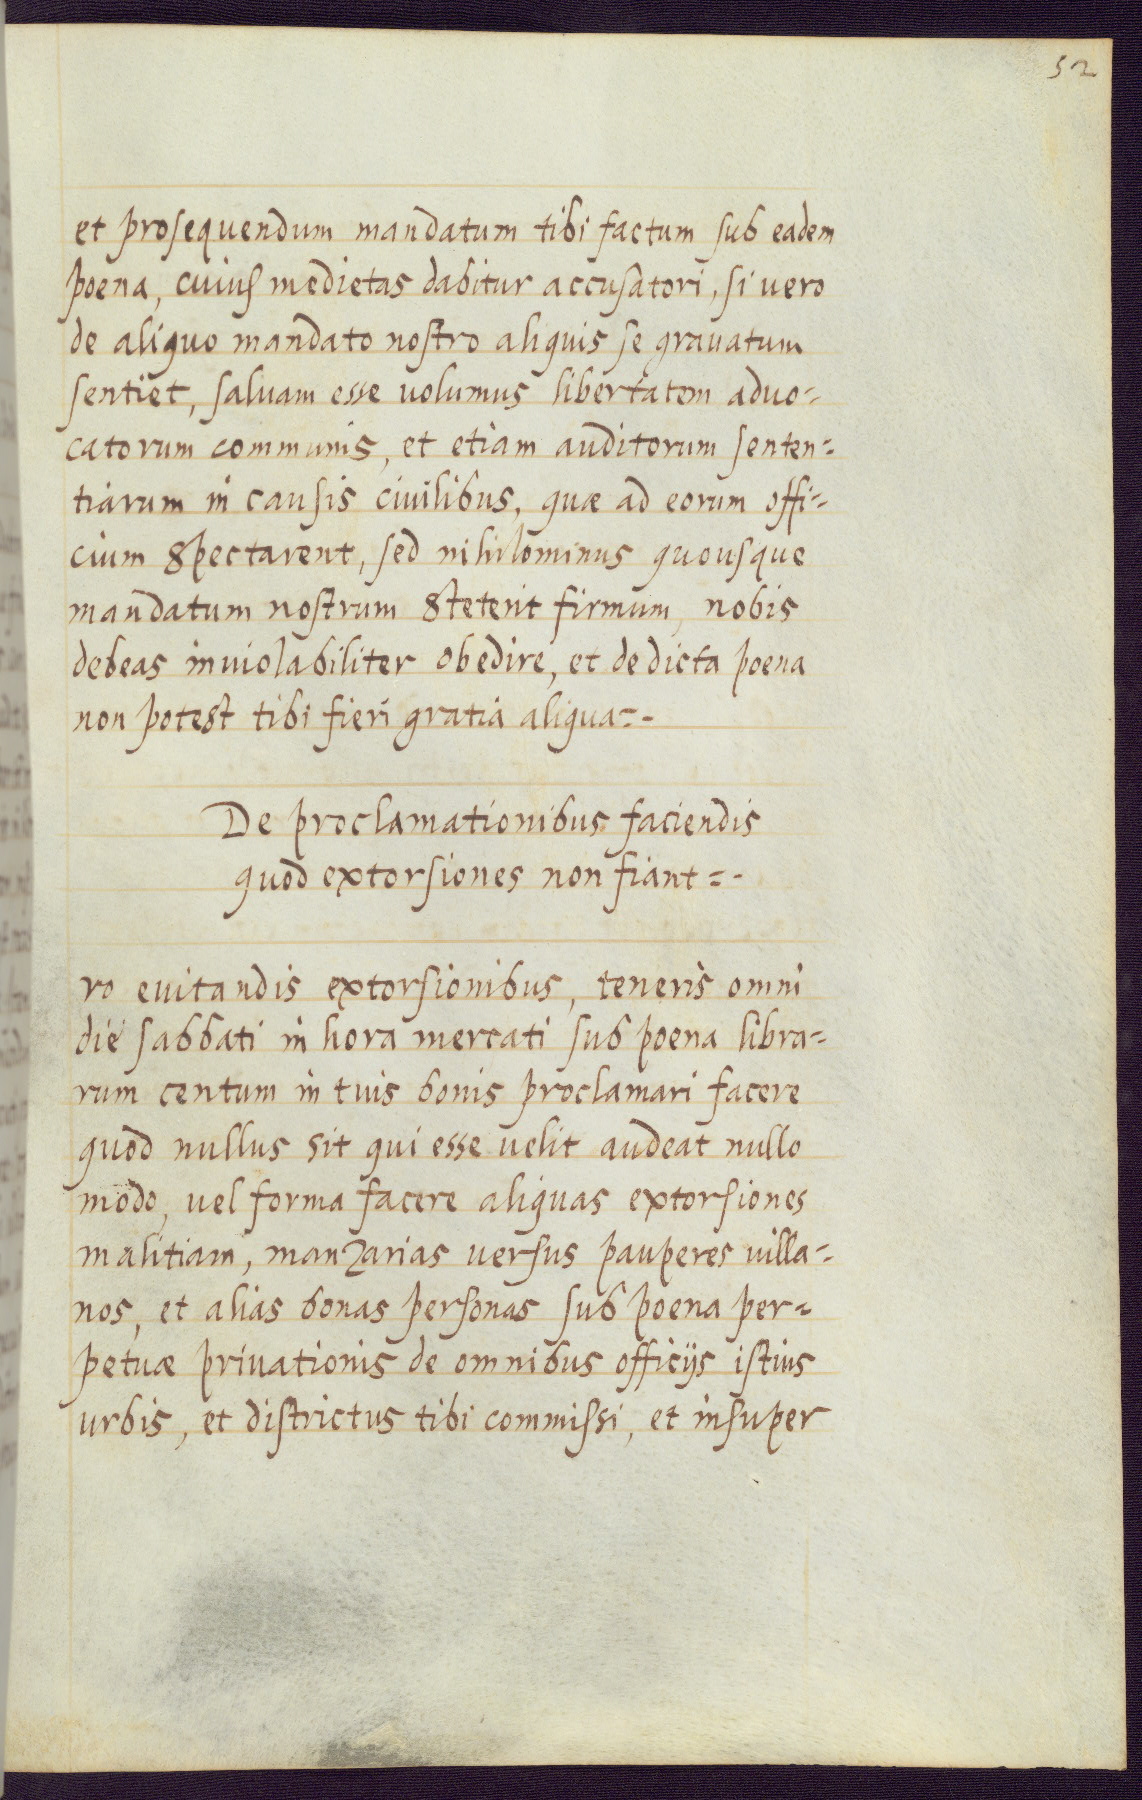 52
et prosequendum mandatum tibi factum sub eadem
poena, cuius medietas dabitur accusatori, si vero
de aliquo mandato nostro aliquis se gravatum
sentiet, salvam esse volumus libertatem advo=
catorum communis, et etiam auditorum senten=
tiarum in causis civilibus, quæ ad eorum offi=
cium spectarent, sed nihilominus quousque
mandatum nostrum steterit firmum, nobis
debeas inviolabiliter obedire, et de dicta poena
non potest tibi fieri gratia aliqua=-
De proclamationibus faciendis
quod extorsiones non fiant=-
ro evitandis extorsionibus, teneris omni
die sabbati in hora mercati sub poena libra=
rum centum in tuis bonis proclamari facere
quod nullus sit qui esse velit audeat nullo
modo, vel forma facere aliquas extorsiones
malitiam, manzarias versus pauperes villa=
nos, et alias bonas personas sub poena per=
petuæ privationis de omnibus officijs istius
urbis, et districtus tibi commissi, et insuper